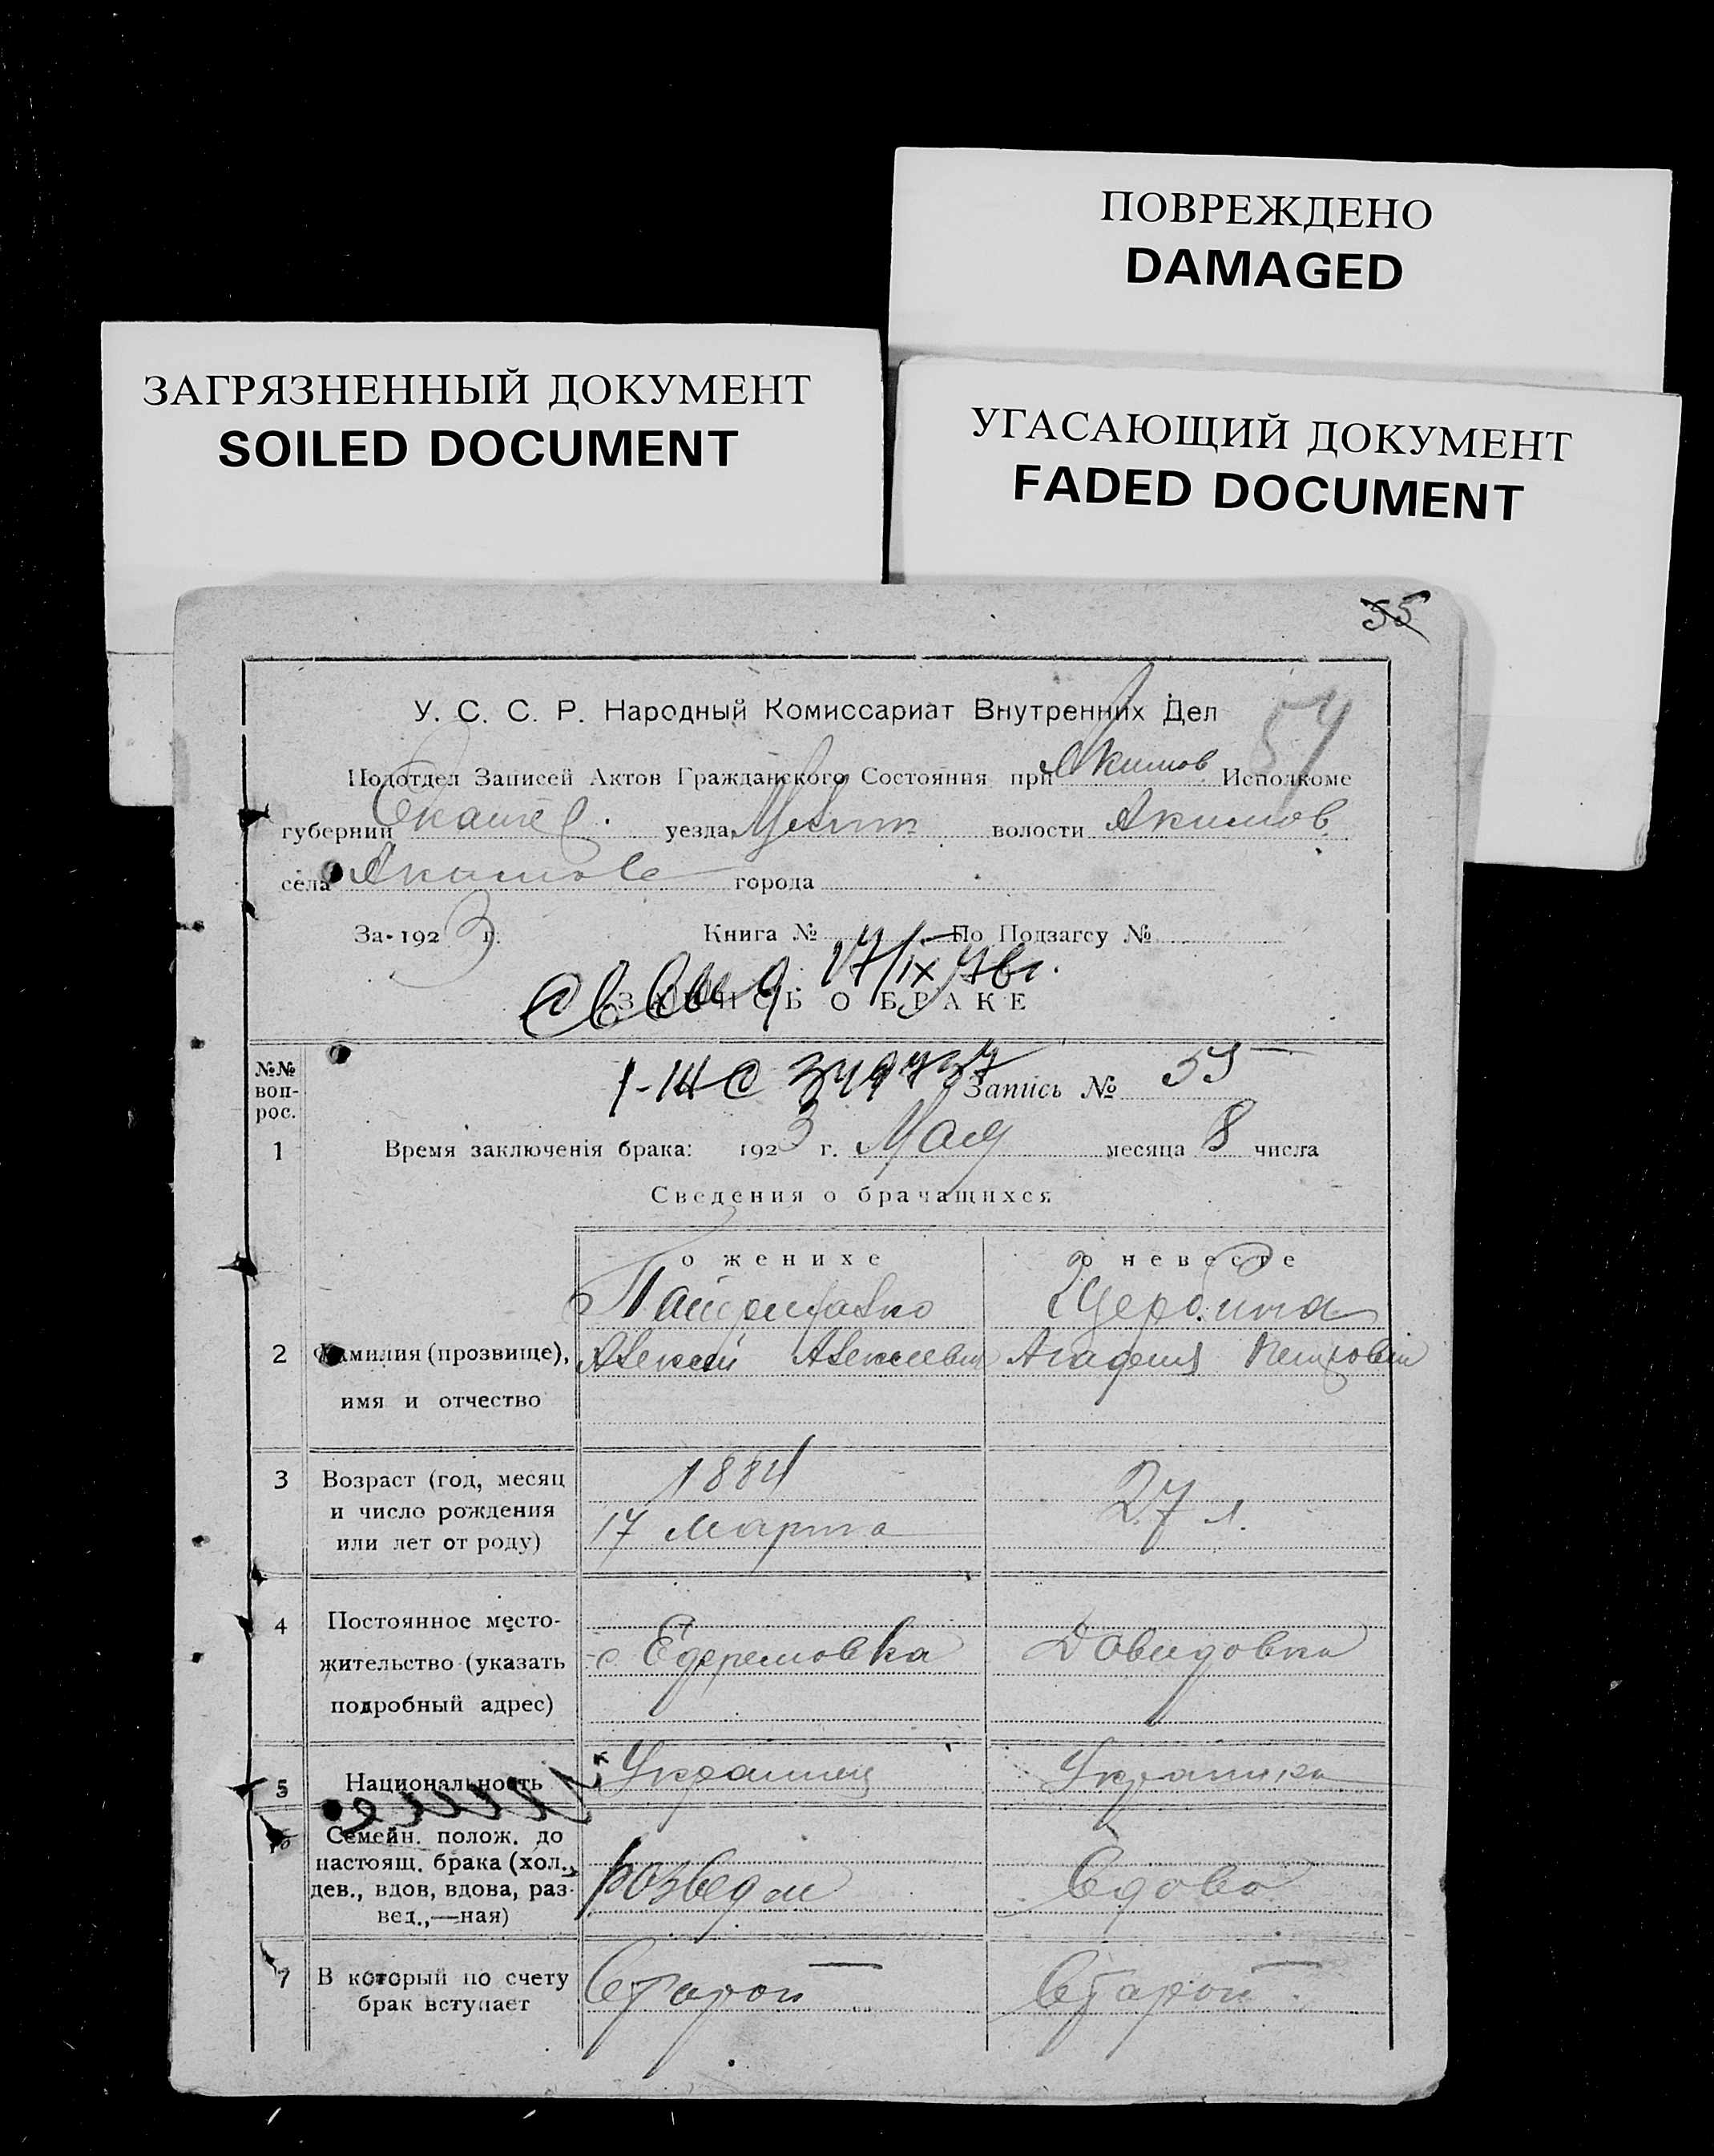 ПОВРЕЖДЕНО
DAMAGED
ЗАГРЯЗНЕННЫЙ ДОКУМЕНТ
SOILED DOCUMENT
УГАСАЮЩИЙ ДОКУМЕНТ
FADED DOCUMENT
55
У. С. С. Р. Народный Комиссариат Внутренних Дел
54
Подотдел Записей Актов Гражданского Состояния при Акимов Исполкоме
губернии уезда Мелит волости Акимов.
села Акимовс города
За 1923 г. Книга № По Подзагсу №
17/IX
ЗАПИСЬ О БРАКЕ
№№ воп-рос.
Запись № 55
1 Время заключенія брака: 1923 г. Мая месяца 8 числа
Сведения о брачащихся
о женихе о невесте
Щербина
2 Фамилия (прозвище), Алексей Алексеевич Петровна
имя и отчество
3 Возраст (год, месяц 1884
и число рождения 27 л.
или лет от роду) 17 марта
4 Постоянное место-
жительство (указать с. Давидовка
подробный адрес)
5 Национальность Украинец Украинка
6 Семейн. полож. до
настоящ. брака (хол.,
дев., вдов, вдова, раз- вдова
вед.,—ная)
7 В который по счету второй второй
брак вступает